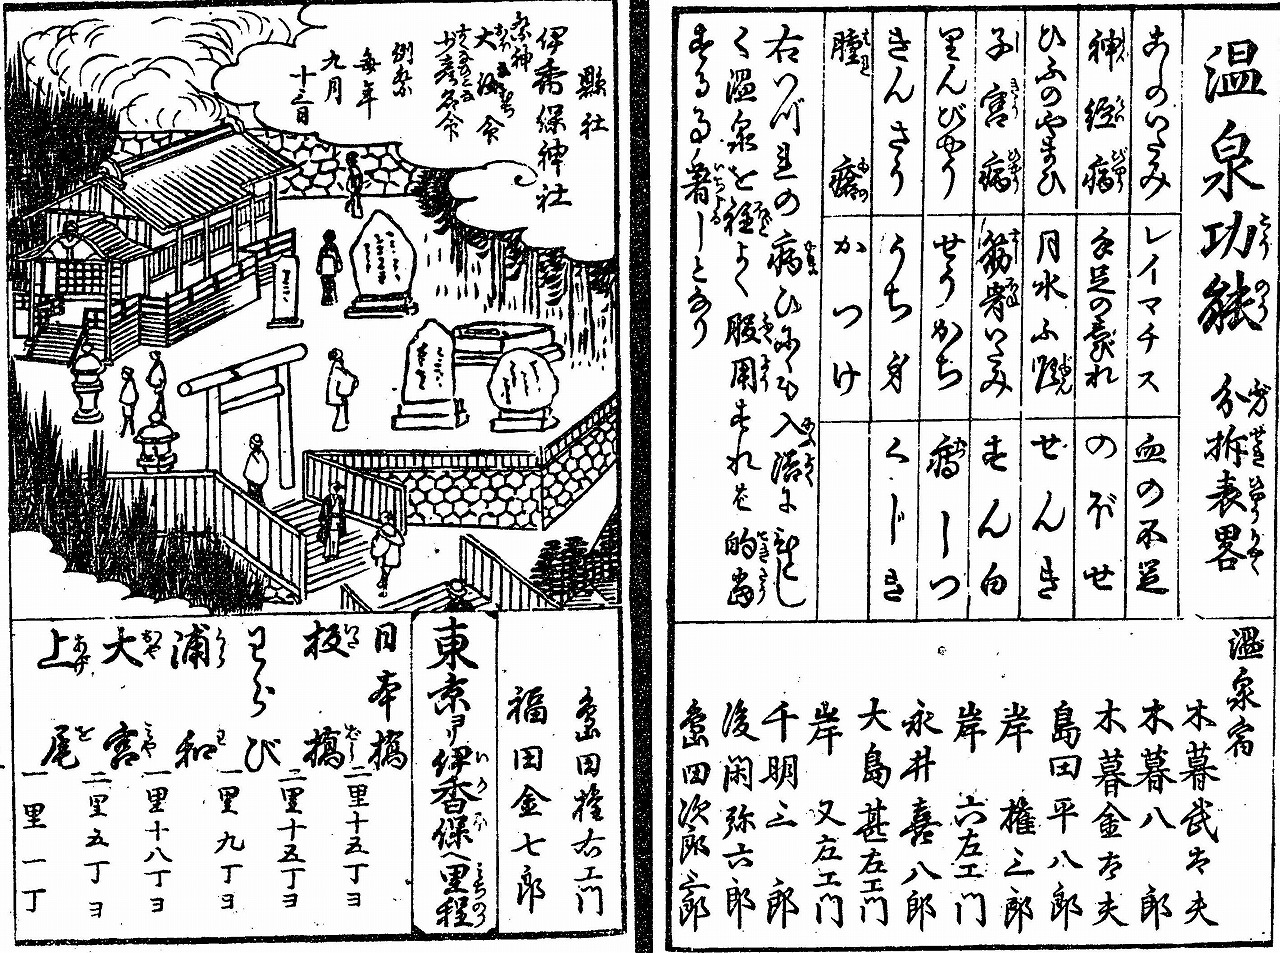 温泉功能 分拆表畧
あしのいたみ
レイマチス
血の不足
神経病
手足の痿びれ
のぼせ
ひふのやまひ
月水不順
ぜんき
子宮病
筋骨いたみ
せん白
りんびやう
せうかち
癪しつ
きんさう
うち身
くじき
腫瘡
かつけ
右いづれの病ひにても入浴に
く温泉を程よく服用すれば的当
する事著しとなり
温泉宿
木暮武太夫
木暮八郎
木暮金太夫
島田平八郎
岸権三郎
岸六左エ門
永井喜八郎
大島甚左エ門
岸又左エ門
千明三郎
後閑弥六郎
島田治郎三郎
島田権右エ門
福田金七郎
縣社
伊香保神社
祭神
大海命
少彦名命
例祭
毎年
九月
十三日
東京ヨリ伊香保へ里程
日本橋
二里十五丁ヨ
板橋
二里十五丁ヨ
わらび
一里九丁ヨ
浦和
一里十八丁ヨ
大宮
二里五丁ヨ
上尾
一里一丁